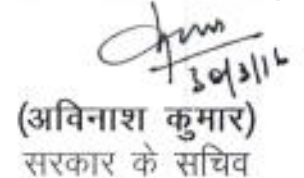 30/3/16
(अविनाश कुमार)
सरकार के सचिव